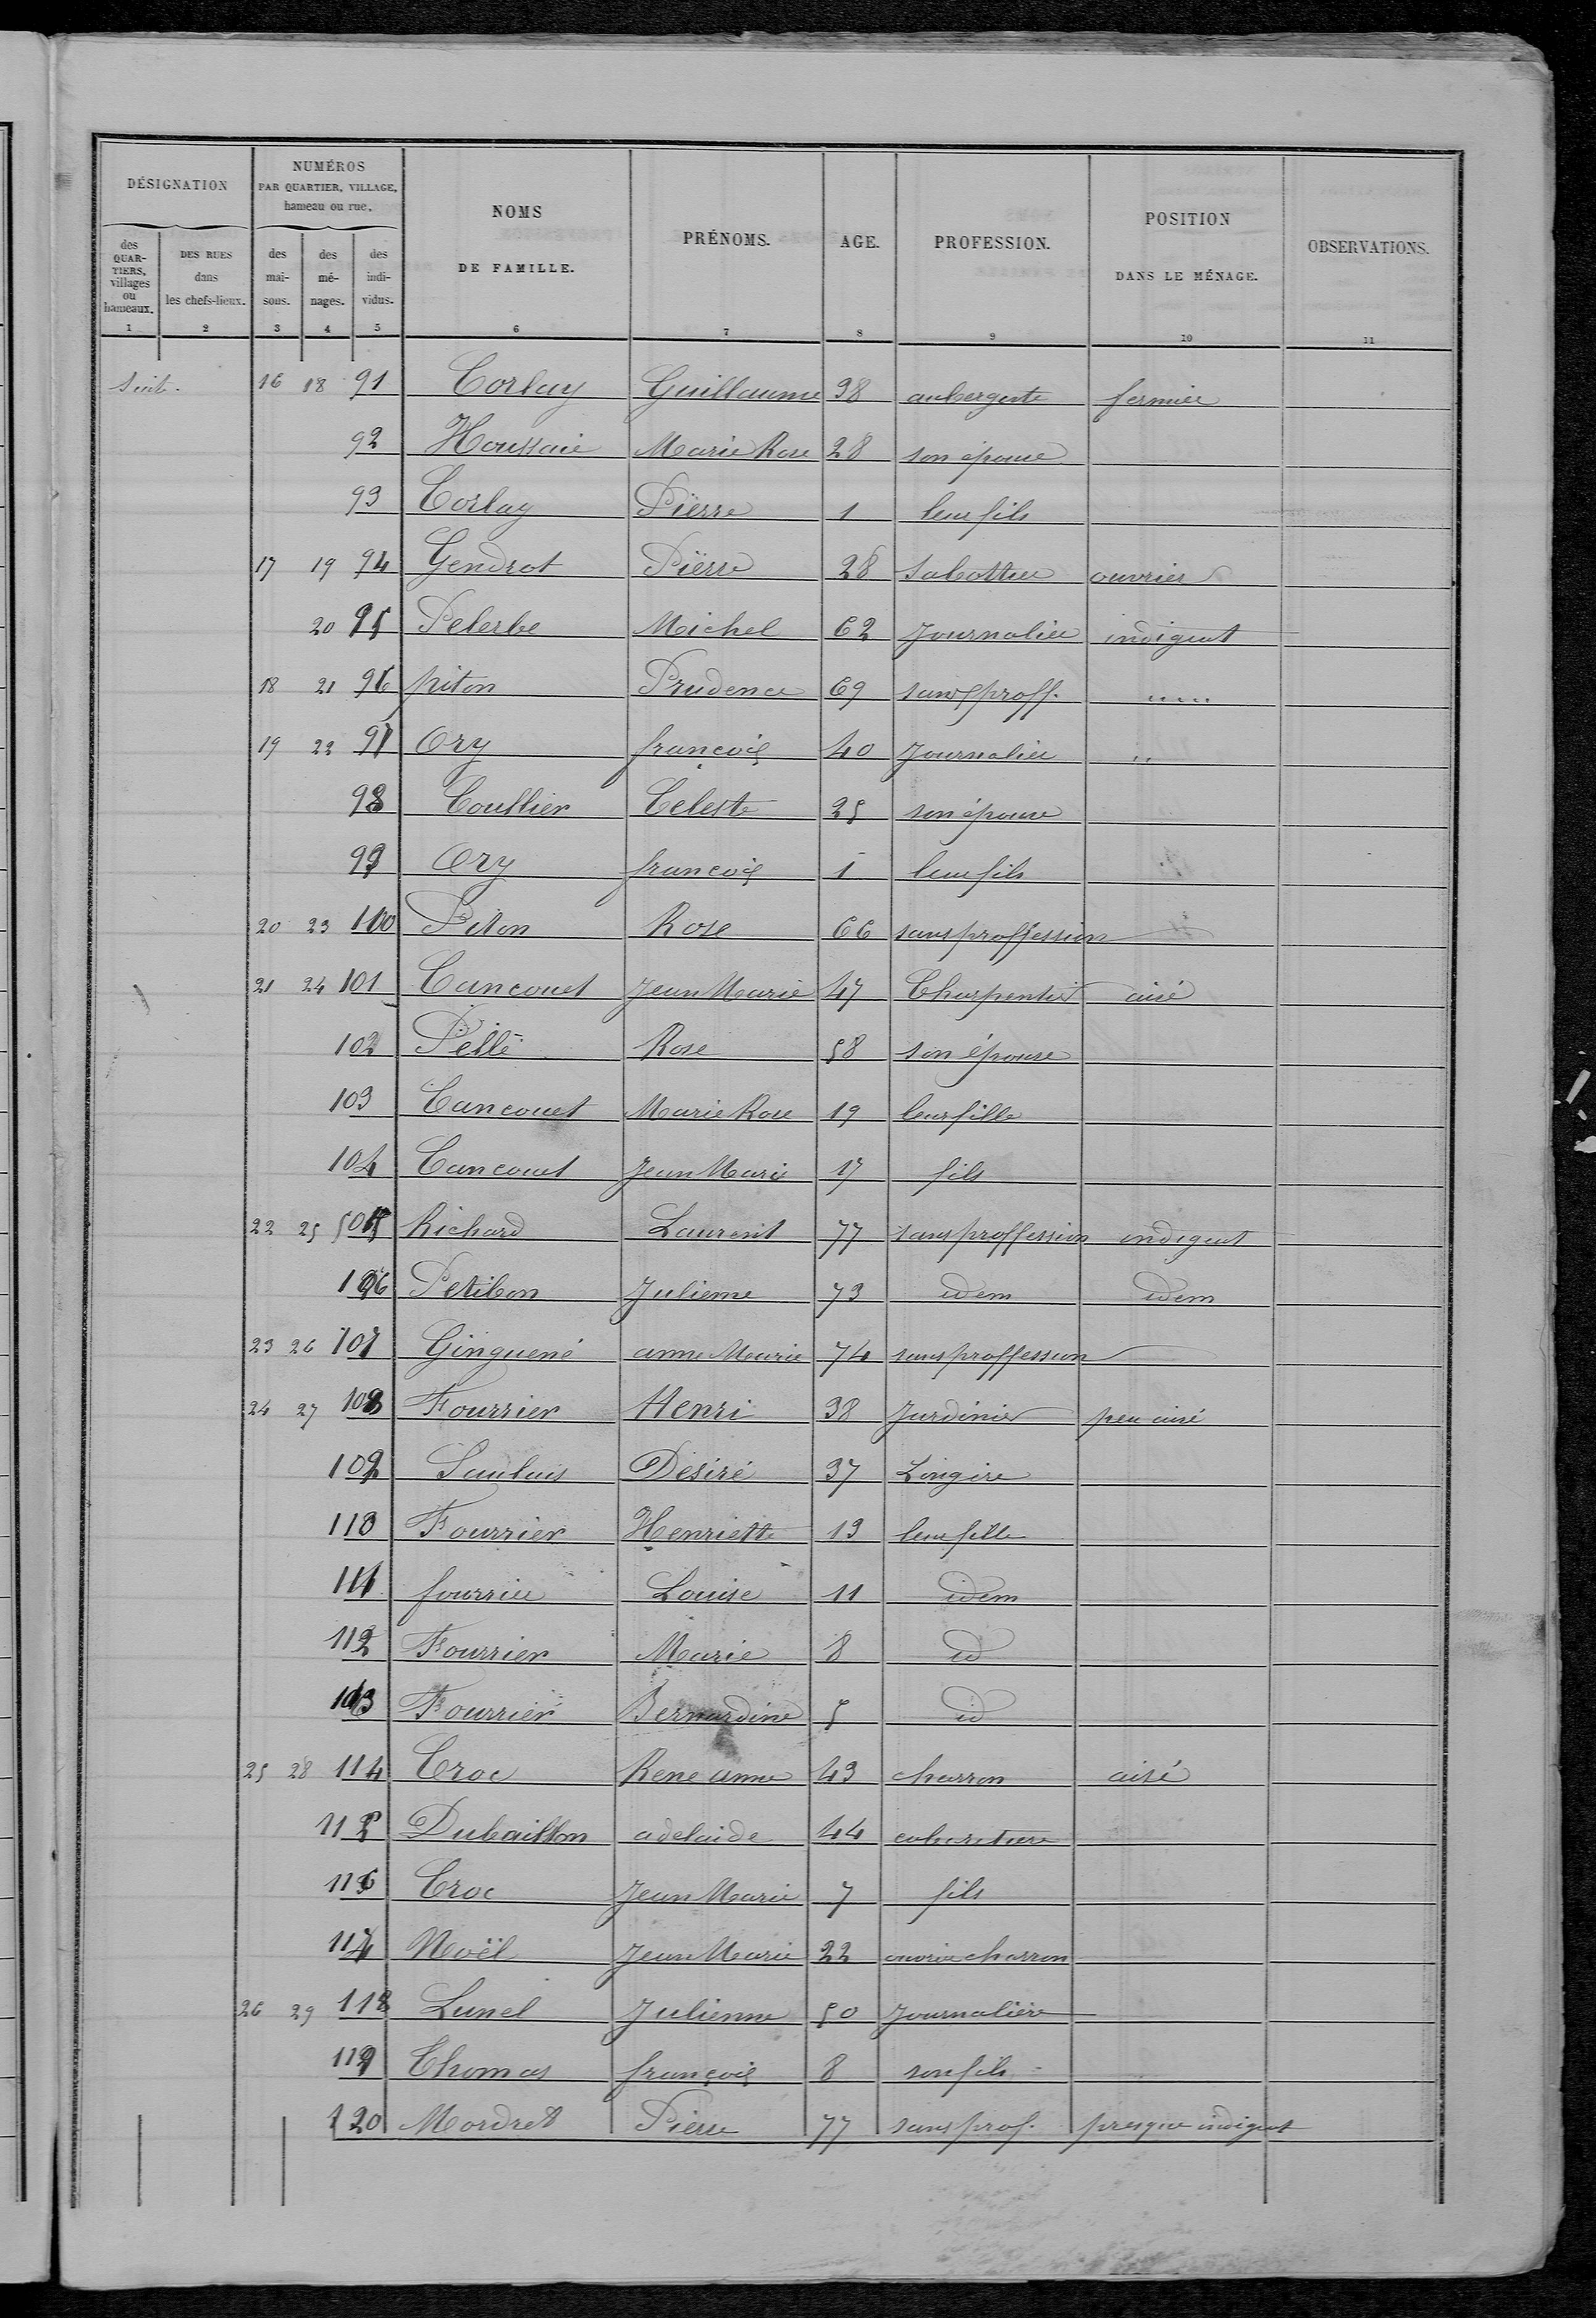 DÉSIGNATION
NUMÉROS
PAR QUARTIER, VILLAGE,
hameau ou rue.
NOMS
DE FAMILLE.
PRÉNOMS.
AGE.
PROFESSION.
POSITION
DANS LE MÉNAGE.
OBSERVATIONS.
des
QUAR-
TIERS,
villages
ou
hameaux.
DES RUES
dans
les chefs-lieux.
des
mai-
sons.
des
mé-
nages.
des
indi-
vidus.
1 2 3 4 5 6 7 8 9 10 11
suit. 16 18 91 Corlay Guillaume 38 aubergiste fermier
92 Houssaie Marie Rose 28 son épouse
93 Corlay Pierre 1 leur fils
17 19 94 Gendrot Pierre 28 sabottier ouvrier
20 95 Pelerbe Michel 62 Journalier indigent
18 21 96 piton Prudence 69 sans proff. .....
19 22 97 Ory françois 40 Journalier ..
98 Coullier Celeste 25 son épouse
99 Ory françois 1 leur fils
20 23 100 Piton Rose 66 sans proffession
21 24 101 Cancouet Jean Marie 47 Charpentier aisé
102 Pellé Rose 58 son épouse
103 Cancouet Marie Rose 19 leur fille
104 Cancouet Jean Marie 17 fils
22 25 105 Richard Laurent 77 sans proffession indigent
106 Petibon Julienne 73 idem idem
23 26 107 Ginguené anne Marie 74 sans proffession
24 27 108 Fourrier Henri 38 Jardinier peu aisé
109 Saulais Désiré 37 Lingère
110 Fourrier Henriette 13 leur fille
111 fourrier Louise 11 idem
112 Fourrier Marie 8 id
113 Fourrier Bernardine 5 id
25 28 114 Croc Rene anne 43 charron aisé
115 Dubaillon adelaide 44 cabaretiere
116 Croc Jean Marie 7 fils
117 Noël Jean Marie 22 ouvrier charron
26 29 118 Lunel Julienne 50 Journalière
119 Thomas françois 8 son fils
120 Mordret Pierre 77 sans prof. presque indigent